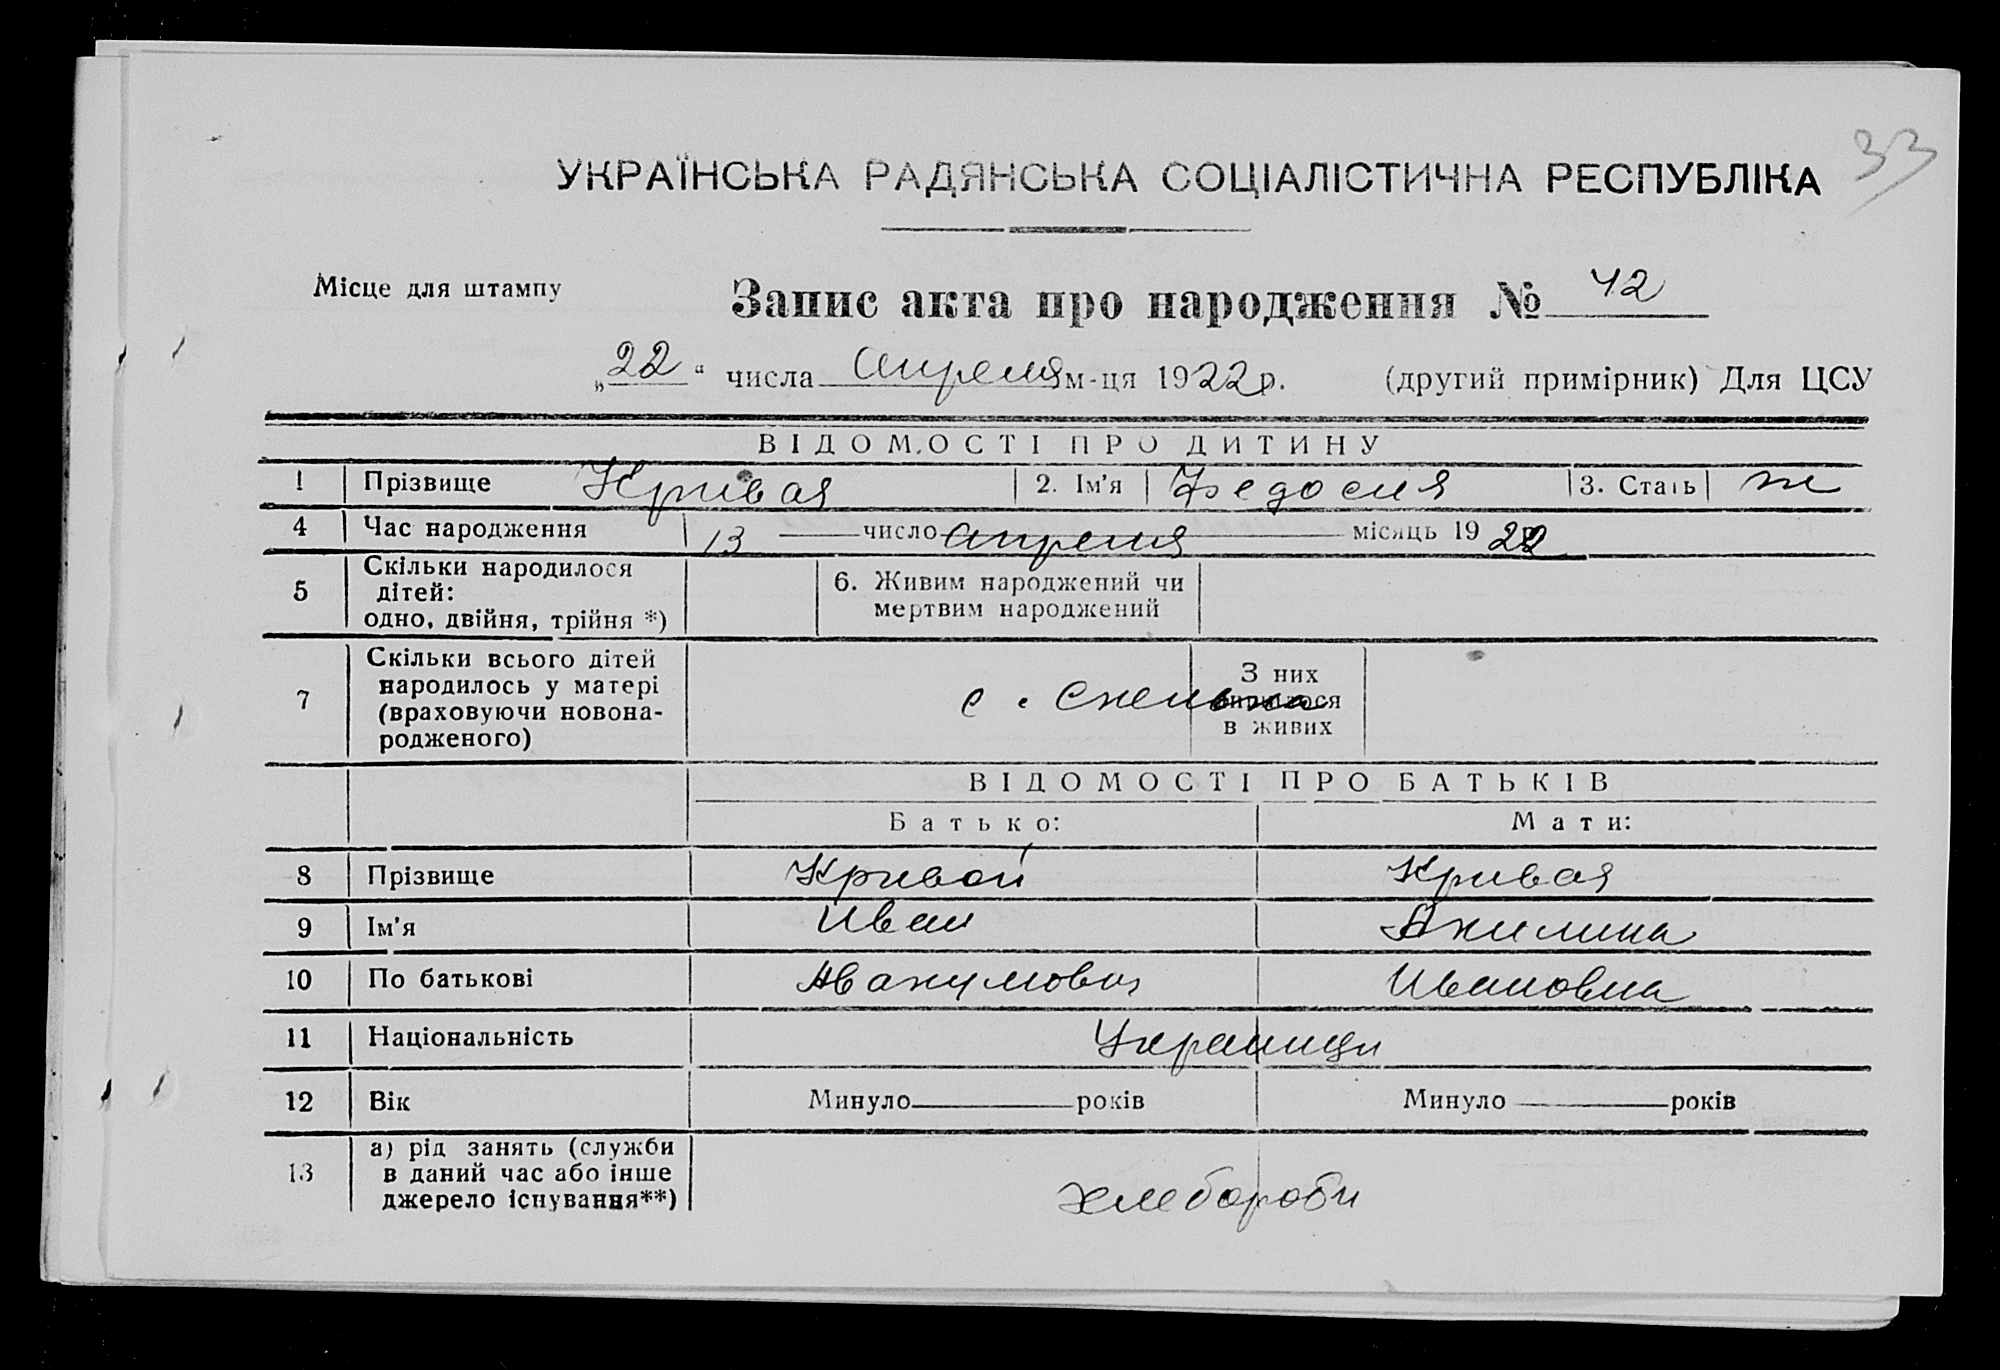 33
УКРАЇНСЬКА РАДЯНСЬКА СОЦІАЛІСТИЧНА РЕСПУБЛІКА
Місце для штампу
Запис акта про народження № 42
„22“ числа Апреля м-ця 1922 р. (другий примірник) Для ЦСУ
ВІДОМОСТІ ПРО ДИТИНУ
1 Прізвище Кривая 2. Ім'я Федосия 3. Стать ж
4 Час народження 13 число апреля місяць 1922
5 Скільки народилося дітей: одно, двійня, трійня *) 6. Живим народжений чи мертвим народжений
7 Скільки всього дітей народилось у матері (враховуючи новонародженого) с. З них лишилося в живих
ВІДОМОСТІ ПРО БАТЬКІВ
Батько: Мати:
8 Прізвище Кривой Кривая
9 Ім'я Иван Акилина
10 По батькові Авакумович Ивановна
11 Національність Украинци
12 Вік Минуло років Минуло років
13 а) рід занять (служби в даний час або інше джерело існування**) хлебороби